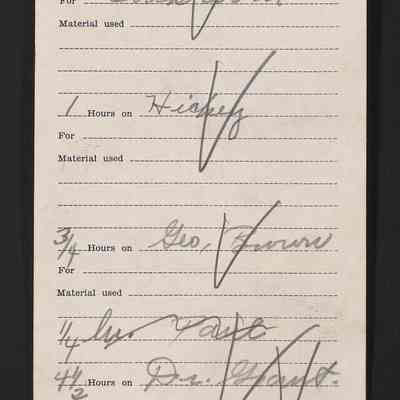 For
Material used
1 Hours on Hickey
For
Material used
3/4 Hours on Geo. Brown
For
Material used
1/4 hr.
4 1/2 Hours on Dr. Grant.